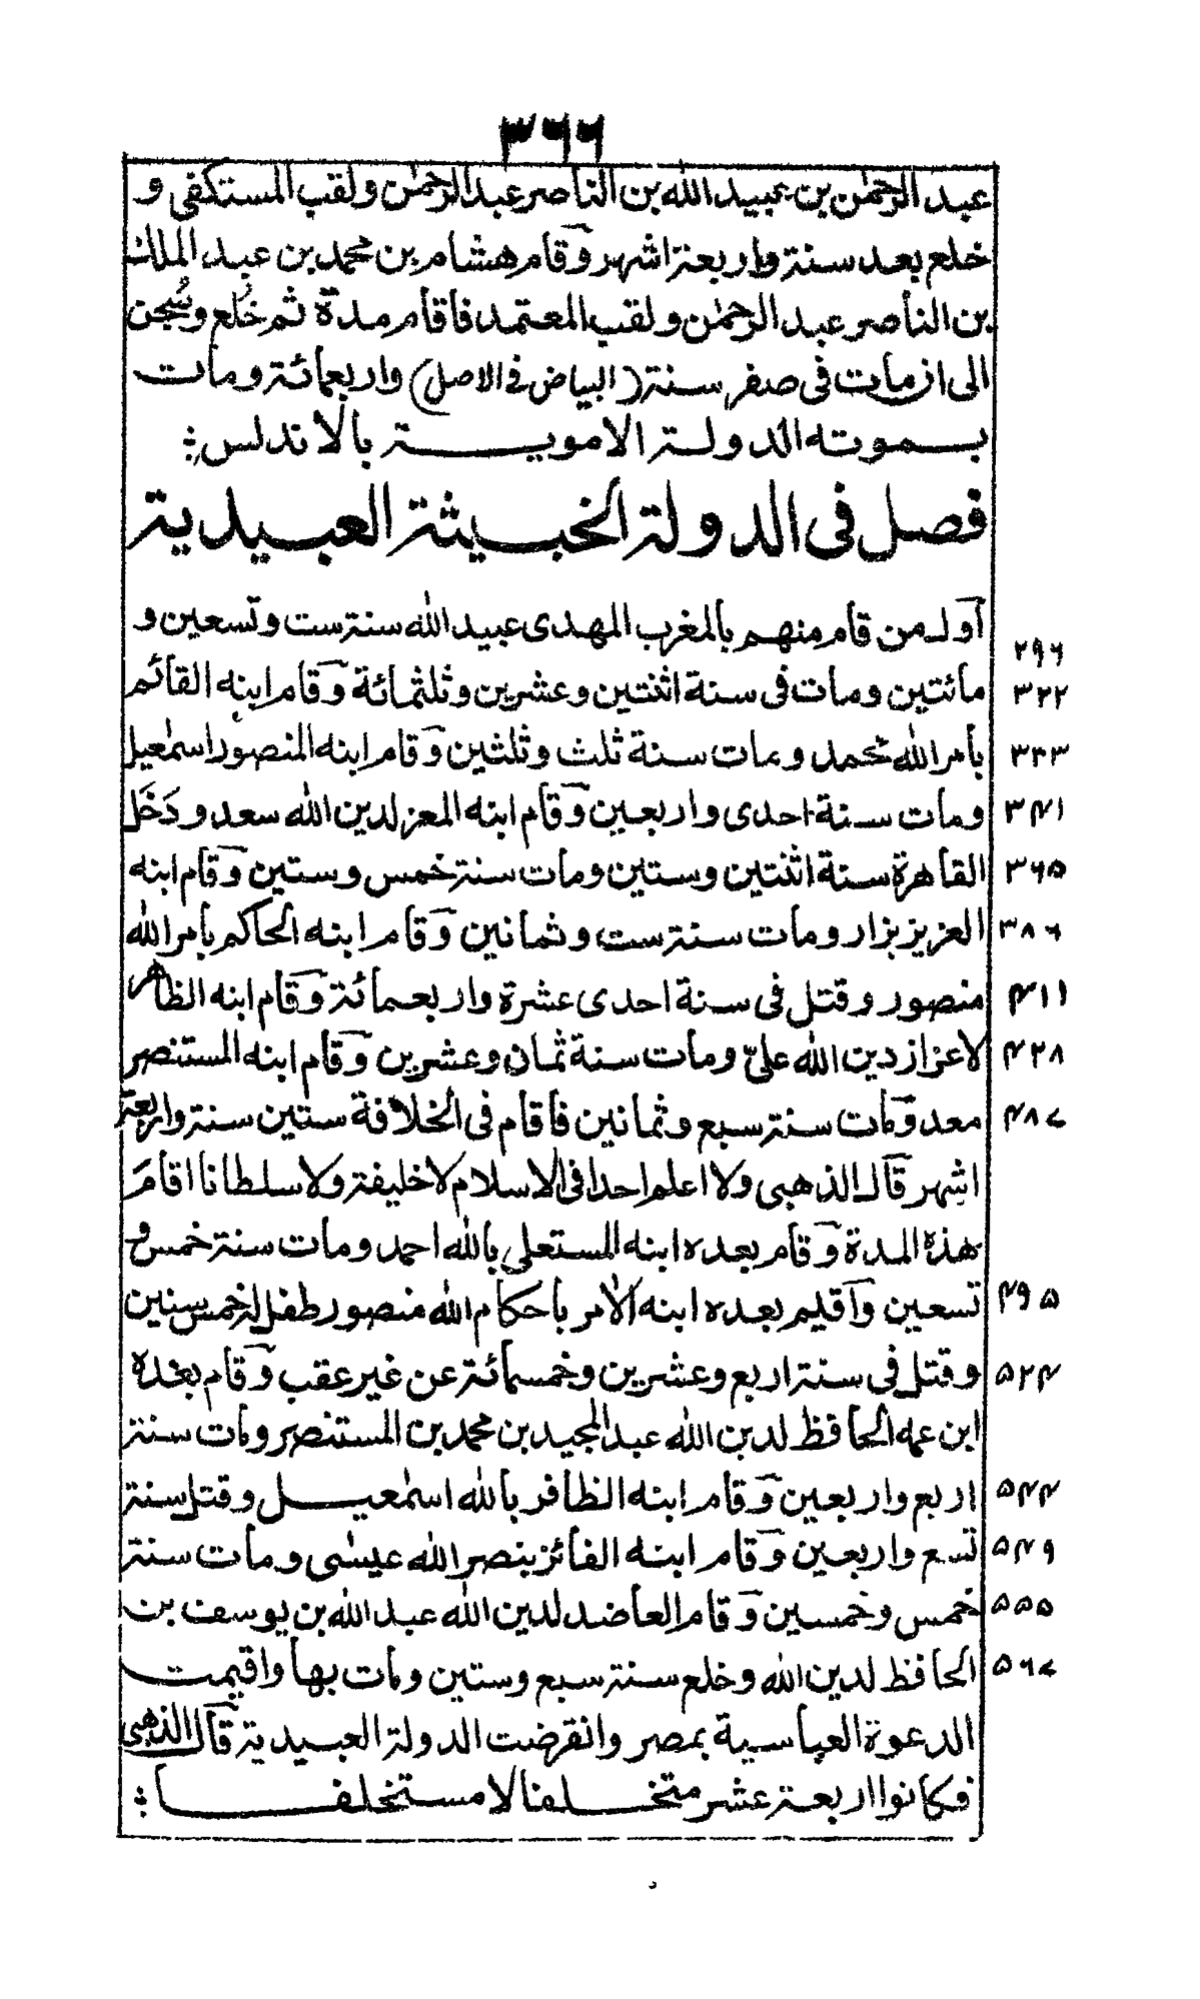 ٣٦٦
عبد الرحمٰن بن عبيد الله بن الناصر عبد الرحمٰن ولقب المستكفي و
خلع بعد سنة واربعة اشهر وقام هشام بن محمد بن عبد الملك
بن الناصر عبد الرحمٰن ولقب المعتمد فاقام مدة ثم خُلع وسُجن
الى ان مات في صفر سنة (البياض في الاصل) واربعمائة ومات
بموته الدولة الاموية بالاندلس ؛
فصل في الدولة الخبيثة العبيدية
اول من قام منهم بالمغرب المهدى عبيد الله سنة ست وتسعين و
٢٩٦
مائتين ومات في سنة اثنتين وعشرين وثلثمائة وقام ابنه القائم ٣٢٢
بامر الله محمد ومات سنة ثلث وثلثين وقام ابنه المنصور اسمٰعيل ٣٣٣
ومات سنة احدى واربعين وقام ابنه المعز لدين الله سعد ودَخَل ٣٤١
القاهرة سنة اثنتين وستين ومات سنة خمس وستين وقام ابنه ٣٦٥
العزيز بزار ومات سنة ست وثمانين وقام ابنه الحاكم بامر الله ٣٨٦
منصور وقتل في سنة احدى عشرة واربعمائة وقام ابنه الظاهر ٤١١
لاعزاز دين الله عليّ ومات سنة ثمان وعشرين وقام ابنه المستنصر ٤٢٨
معد ومات سنة سبع وثمانين فاقام في الخلافة ستين سنة واربعة ٤٨٧
اشهر قال الذهبي ولا اعلم احدا في الاسلام لا خليفة ولا سلطانا اقامَ
هذه المدة وقام بعده ابنه المستعلي بالله احمد ومات سنة خمس و
تسعين واقيم بعده ابنه الآمر باحكام الله منصور طفل له خمس سنين ٤٩٥
وقتل في سنة اربع وعشرين وخمسمائة عن غير عقب وقام بعده ٥٢٤
ابن عمه الحافظ لدين الله عبد المجيد بن محمد بن المستنصر ومات سنة
اربع واربعين وقام ابنه الظافر بالله اسمٰعيل وقتل سنة ٥٤٤
تسع واربعين وقام ابنه الفائز بنصر الله عيسٰى ومات سنة ٥٤٩
خمس وخمسين وقام العاضد لدين الله عبد الله بن يوسف بن ٥٥٥
الحافظ لدين الله وخلع سنة سبع وستين ومات بها واقيمت ٥٦٧
الدعوة العباسية بمصر وانقرضت الدولة العبيدية قال الذهبي
فكانوا اربعة عشر متخلفا لا مستخلفا ؛